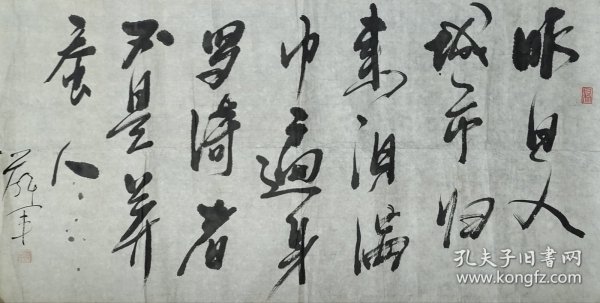 昨日入
城市归
来泪满
巾遍身
罗绮者
不是养
蚕人
孔夫子旧书网
www.kongfz.com